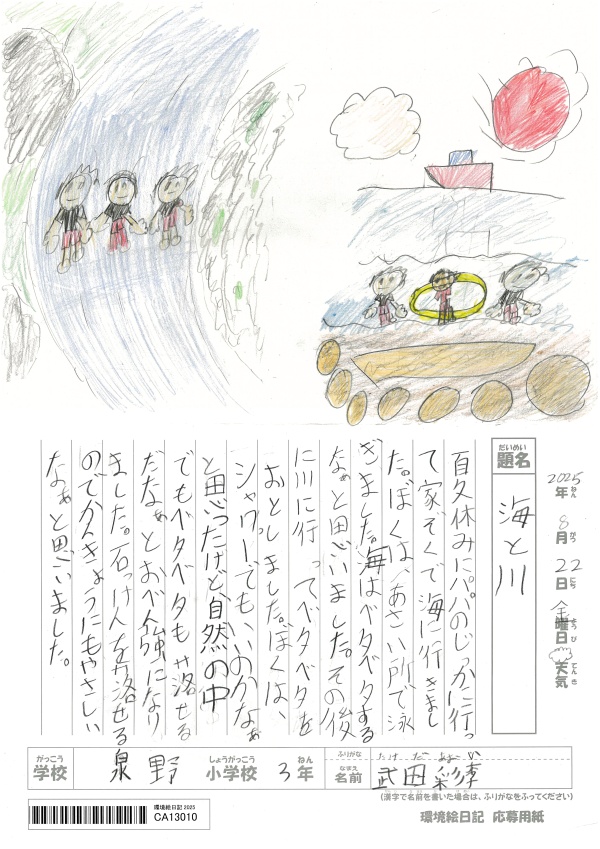 2025年ねん 8月がつ 22日にち 金曜日ようび 天気てんき
題名だいめい
海と川
夏休みにパパのじっかに行っ
て家ぞくで海に行きまし
た。ぼくは、あさい所で泳
ぎました。海はベタベタする
なぁと思いました。その後
に川に行ってベタベタを
おとしました。ぼくは、
シャワーでもいいのかなぁ
と思ったけど、自然の中
でもベタベタも落せる
だなぁとおべん強になり
ました。石けんを落せる
のでかんきょうにもやさしい
なぁと思いました。
がっこう
学校
泉野
しょうがっこう
小学校
3
ねん
年
ふりがな
なまえ
名前
たけだ
武田
(漢字で名前を書いた場合は、ふりがなをふってください)
環境絵日記 2025
CA13010
環境絵日記 応募用紙